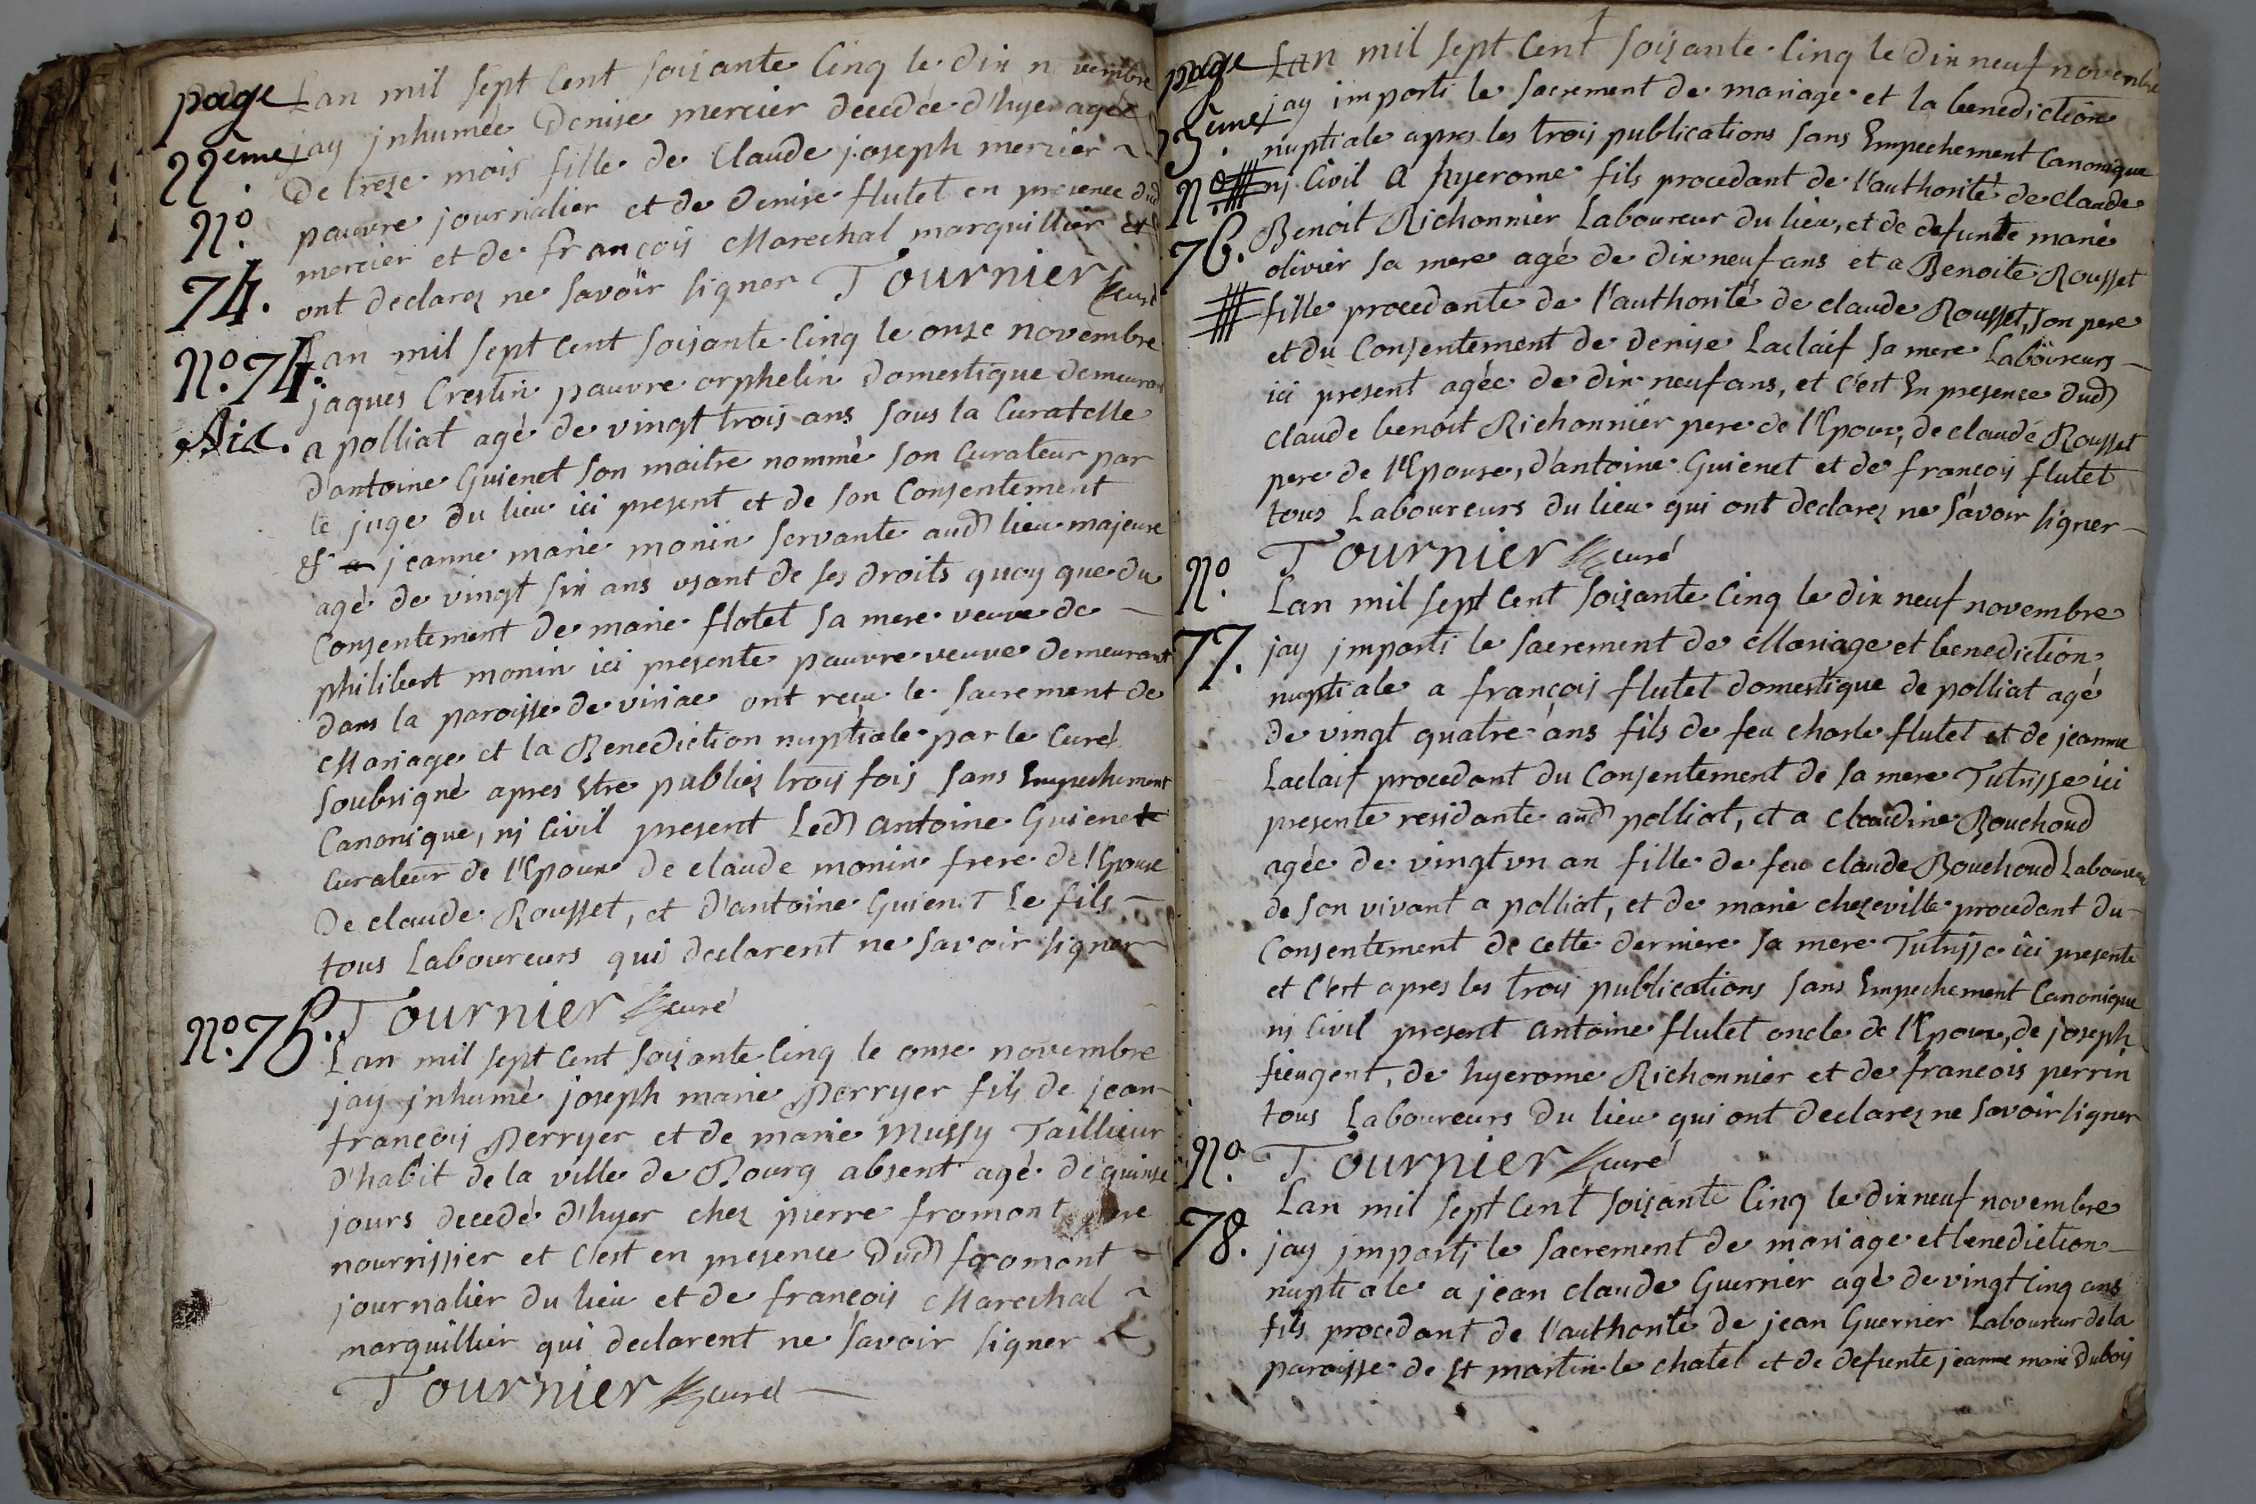 page
22eme
No.
74.
Lan mil sept Cent soizante Cinq le dix n vembre
jay jnhumée Denise mercier decedée d'hyer agée
de treze mois fille de Claude joseph mercier ~
pauvre journalier et de Denise flutet en presence dud
mercier et de françois Marechal marguillier et
ont declarez ne savoir signer Tournier curé
No. 74.
Aic.
Lan mil sept cent soizante Cinq le onze novembre
jaques Crestin pauvre orphelin domestique demeurant
a polliat agé de vingt trois ans sous la Curatelle
d'antoine Guienet son maitre nommé son Curateur par
le juge du lieu ici present et de son Consentement
& jeanne marie monin servante aud lieu majeure
agé de vingt six ans usant de ses droits quoy que du
Consentement de marie flotet sa mere veuve de —
philibert monin ici presente pauvre veuve demeurant
dans la paroisse de viriac ont recu le sacrement de
Mariage et la Benediction nuptiale par le Curé
soubsigné apres Etre publiez trois fois sans Empechement
Canonique, nj Civil present Led antoine Guienet
Curateur de l'Epoux de claude monin frere de l'Epouse
De claude Rousset, et d'antoine Guienet le fils —
tous Laboureurs qui declarent ne savoir signer
Tournier curé
No. 75.
Lan mil sept Cent soizante Cinq le onze novembre
jay jnhumé joseph marie Perryer fils de jean
françois Perryer et de marie Mussy Taillieur
d'habit de la ville de Bourg absent agé de quinze
jours decedé d'hyer chez pierre fromont pere
nourrissier et c'est en presence dud fromont ~
journalier du lieu et de françois Marechal ~
marguillier qui declarent ne savoir signer
Tournier curé
page
23eme
No.
76.
Lan mil sept Cent soizante Cinq le dix neuf novembre
jay imparti le sacrement de mariage et la benediction
nuptiale apres les trois publications sans Empechement Canonique
nj Civil a hyerome fils procedant de l'authorité de claude
Benoit Richonnier Laboureur du lieu, et de defunte marie
olivier sa mere agé de dix neuf ans et a Benoite Rousset
fille procedante de l'authorité de claude Rousset, son pere
et du Consentement de denise Laclaif sa mere Laboureurs —
ici present agée de dix neuf ans, et c'est En presence dud
claude benoit Richonnier pere de l'Epoux, de claude Rousset
pere de l'Epouse, d'antoine Guienet et de françois flutet
tous Laboureurs du lieu qui ont declarez ne savoir signer —
Tournier curé
No.
77.
Lan mil sept Cent soizante Cinq le dix neuf novembre
jay jmparti le sacrement de Mariage et benediction
nuptiale a françois flutet domestique de polliat agé
de vingt quatre ans fils de feu charle flutet et de jeanne
Laclaif procedant du Consentement de sa mere Tutrisse ici
presente residante aud polliat, et a claudine Bouchoud
agée de vingt vn an fille de feu claude Bouchoud Laboureur
de son vivant a polliat, et de marie chezeville procedant du
Consentement de cette derniere sa mere Tutrisse ici presente
et c'est apres les trois publications sans Empechement Canonique
nj Civil present antoine flutet oncle de l'Epoux, de joseph
fieugent, de hyerome Richonnier et de françois perrin
tous Laboureurs du lieu qui ont declarez ne savoir signer
Tournier curé
No.
78.
Lan mil sept Cent soizante Cinq le dix neuf novembre
jay jmparti le sacrement de mariage et benediction —
nuptiale a jean claude Guerrier agé de vingt cinq ans
fils procedant de l'authorité de jean Guerrier Laboureur de la
paroisse de st martin le chatel et de defunte jeanne marie Dubois